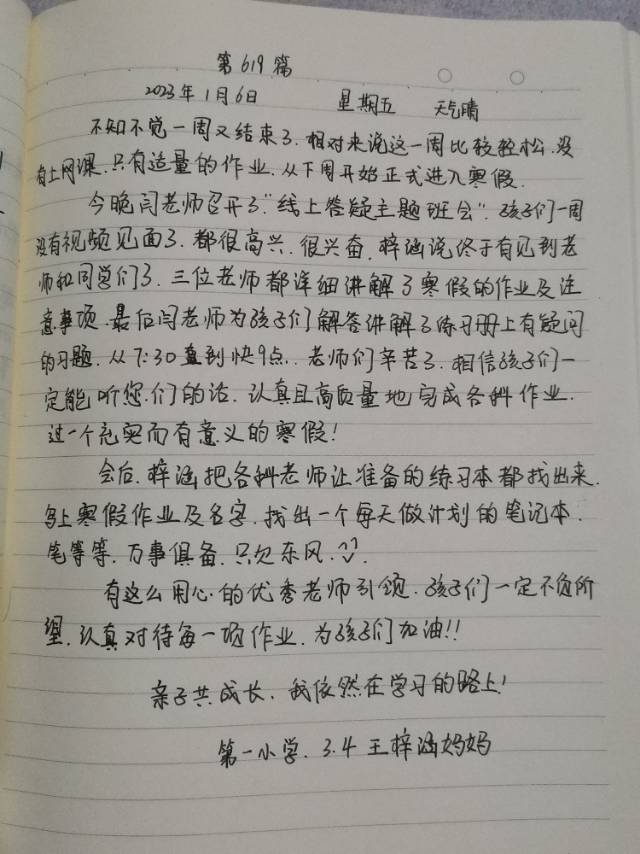 第619篇
2023年1月6日 星期五 天气晴
不知不觉一周又结束了.相对来说这一周比较轻松.没
有上网课.只有适量的作业.从下周开始正式进入寒假.
今晚闫老师召开了“线上答疑主题班会”.孩子们一周
没有视频见面了.都很高兴.很兴奋.梓涵说终于有见到老
师和同学们了.三位老师都详细讲解了寒假的作业及注
意事项.最后闫老师为孩子们解答讲解了练习册上有疑问
的习题.从7:30直到快9点.老师们辛苦了.相信孩子们一
定能听您们的话.认真且高质量地完成各科作业.
过一个充实而有意义的寒假!
会后.梓涵把各科老师让准备的练习本都找出来.
写上寒假作业及名字.找出一个每天做计划的笔记本.
笔等等.万事俱备.只欠东风.
有这么用心的优秀老师引领.孩子们一定不负所
望.认真对待每一项作业.为孩子们加油!!
亲子共成长.我依然在学习的路上!
第一小学.3.4 王梓涵妈妈